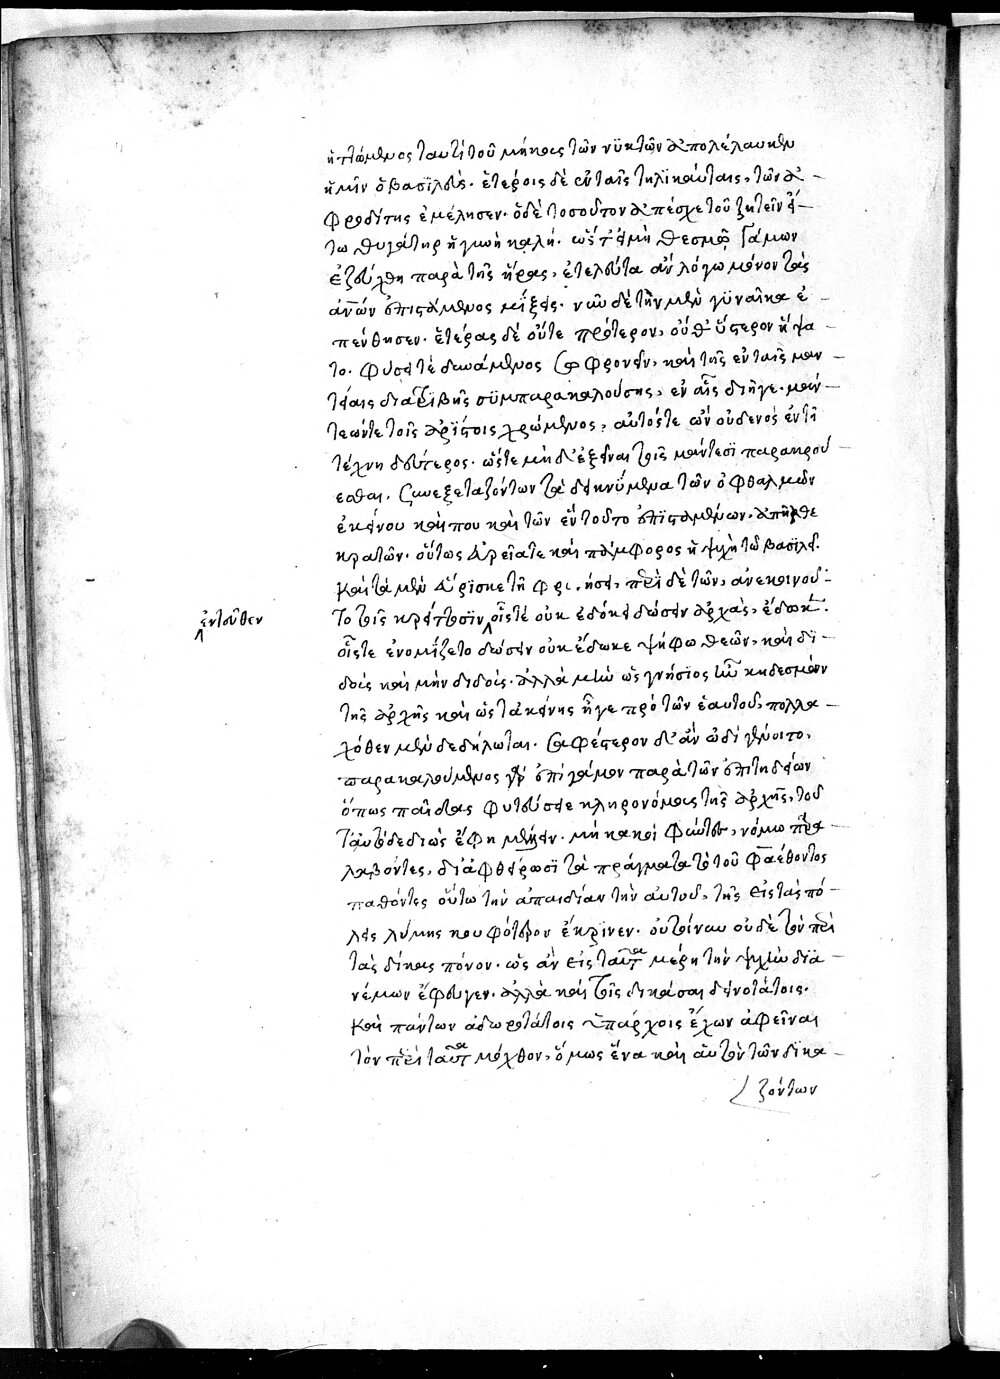 ἡττώμενος ταυτὶ τοῦ μήκους τῶν νυκτῶν ἀπολέλαυκεν
ἡμῖν ὁ βασιλεύς. ἑτέροις δὲ ἐν ταῖς τηλικαύταις, τῶν ἀ-
φροδίτης ἐμέλησεν. ὁ δὲ τοσοῦτον ἀπέσχε τοῦ ζητεῖν ἔσ-
τω θυγάτηρ ἢ γυνὴ καλή. ὥστ' εἰ μὴ θεσμῷ γάμων
ἐζεύχθη παρὰ τῆς ἥρας, ἐτελεύτα ἂν λόγῳ μόνον τὰς
ἀνῶν ἐπιστάμενος μίξεις. νῦν δὲ τὴν μὲν γυναῖκα ἐ-
πένθησεν. ἑτέρας δὲ οὔτε πρότερον, οὔθ' ὕστερον ἥψα-
το. φύσει τὲ δυνάμενος σωφρονεῖν, καὶ τῆς ἐν ταῖς μαν-
τείαις διατριβῆς συμπαρακαλούσης, ἐν αἷς διῆγε. μάν-
τεών τε τοῖς ἀρίστοις χρώμενος, αὐτός τε ὢν οὐδενὸς ἐν τῇ
τέχνῃ δεύτερος. ὥστε μὴ δ' ἐξεῖναι τοῖς μάντεσι παρακρού
εσθαι. συνεξεταζόντων τὰ δεικνύμενα τῶν ὀφθαλμῶν
ἐκείνου καί που καὶ τῶν ἐν τούτῳ ἐπισταμένων. ἀπῆλθε
κρατῶν. οὕτως ἀρεία τε καὶ πυρφόρος ἡ ψυχὴ τῷ βασιλεῖ.
καὶ τὰ μὲν εὕρισκε τῇ φρονήσει, περὶ δὲ τῶν, ἀνεκοινοῦ-
το τοῖς κρείττοσιν ἐντεῦθεν οἷς τὲ οὐκ ἐδόκει δώσειν ἀρχάς, ἔδωκε.
οἷς τε ἐνομίζετο δώσειν οὐκ ἔδωκε ψήφῳ θεῶν, καὶ δι-
δοὺς καὶ μὴν διδούς. ἀλλὰ μὴν ὡς γνήσιος ἦν κηδεμὼν
τῆς ἀρχῆς καὶ ὡς τἀκείνης ἦγε πρὸ τῶν ἑαυτοῦ, πολλα-
χόθεν μὲν δεδήλωται. σαφέστερον δ' ἂν ὡδὶ γένοιτο,
παρακαλούμενος γὰρ ἐπὶ γάμον παρὰ τῶν ἐπιτηδείων
ὅπως παῖδας φυτεύσειε κληρονόμους τῆς ἀρχῆς, τοῦ
τ' αὐτὸ δεδιὼς ἔφη μέλλειν. μὴ κακοὶ φύντες, νόμῳ παρα-
λαβόντες, διαφθείρωσι τὰ πράγματα τὸ τοῦ φαέθοντος
παθόντες οὕτω τὴν ἀπαιδίαν τὴν αὐτοῦ, τῆς εἰς τὰς πό-
λεις λύμης κουφότερον ἔκρινεν. οὐ τοίνυν οὐδὲ τὸν περὶ
τὰς δίκας πόνον. ὡς ἂν εἰς ταῦτα μέρη τὴν ψυχὴν δια-
νέμων ἔφευγεν. ἀλλὰ καὶ τοῖς δικάσαι δεινοτάτοις.
καὶ πάντων ἀδωροτάτοις ὑπάρχοις ἔχων ἀφεῖναι
τὸν περὶ ταῦτα μόχθον, ὅμως ἕνα καὶ αὑτὸν τῶν δικα-
ζόντων